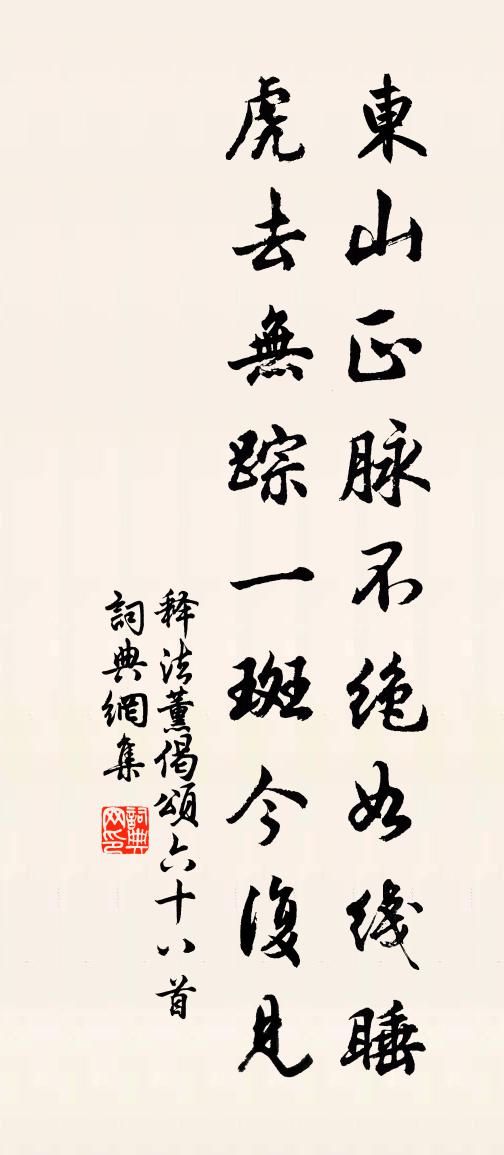 東山正脉不绝如綫睡
虎去無踪一斑今復見
释法薰偈頌六十八首
詞典網集
詞典網印